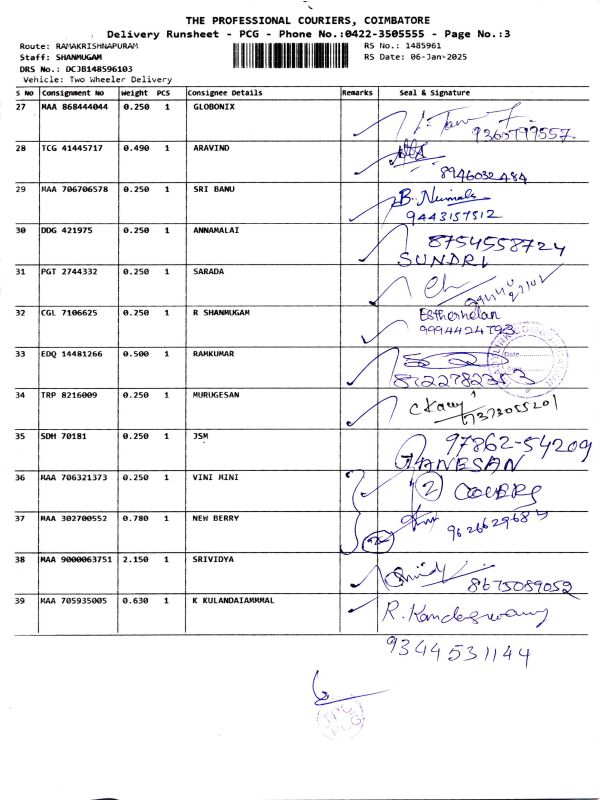 THE PROFESSIONAL COURIERS, COIMBATORE
Delivery Runsheet - PCG - Phone No.:0422-3505555 - Page No.:3
Route: RAMAKRISHNAPURAM RS No.: 1485961
Staff: SHANMUGAM RS Date: 06-Jan-2025
DRS No.: DCJB148596103
Vehicle: Two Wheeler Delivery
S NO Consignment No Weight PCS Consignee Details Remarks Seal & Signature
27 MAA 868444044 0.250 1 GLOBONIX
28 TCG 41445717 0.490 1 ARAVIND
8946032484
29 MAA 706706578 0.250 1 SRI BANU
9443157512
30 DDG 421975 0.250 1 ANNAMALAI 8754558724
SUNDRI
31 PGT 2744332 0.250 1 SARADA
32 CGL 7106625 0.250 1 R SHANMUGAM Estherhelan
9994424793
33 EDQ 14481266 0.500 1 RAMKUMAR
34 TRP 8216009 0.250 1 MURUGESAN
35 SDH 70181 0.250 1 JSM 97862-54209
GANESAN
36 MAA 706321373 0.250 1 VINI MINI 2 COVERS
37 MAA 302700552 0.780 1 NEW BERRY
38 MAA 9000063751 2.150 1 SRIVIDYA
8675089052
39 MAA 705935005 0.630 1 K KULANDAIAMMMAL R. Kandaswamy
9344531144